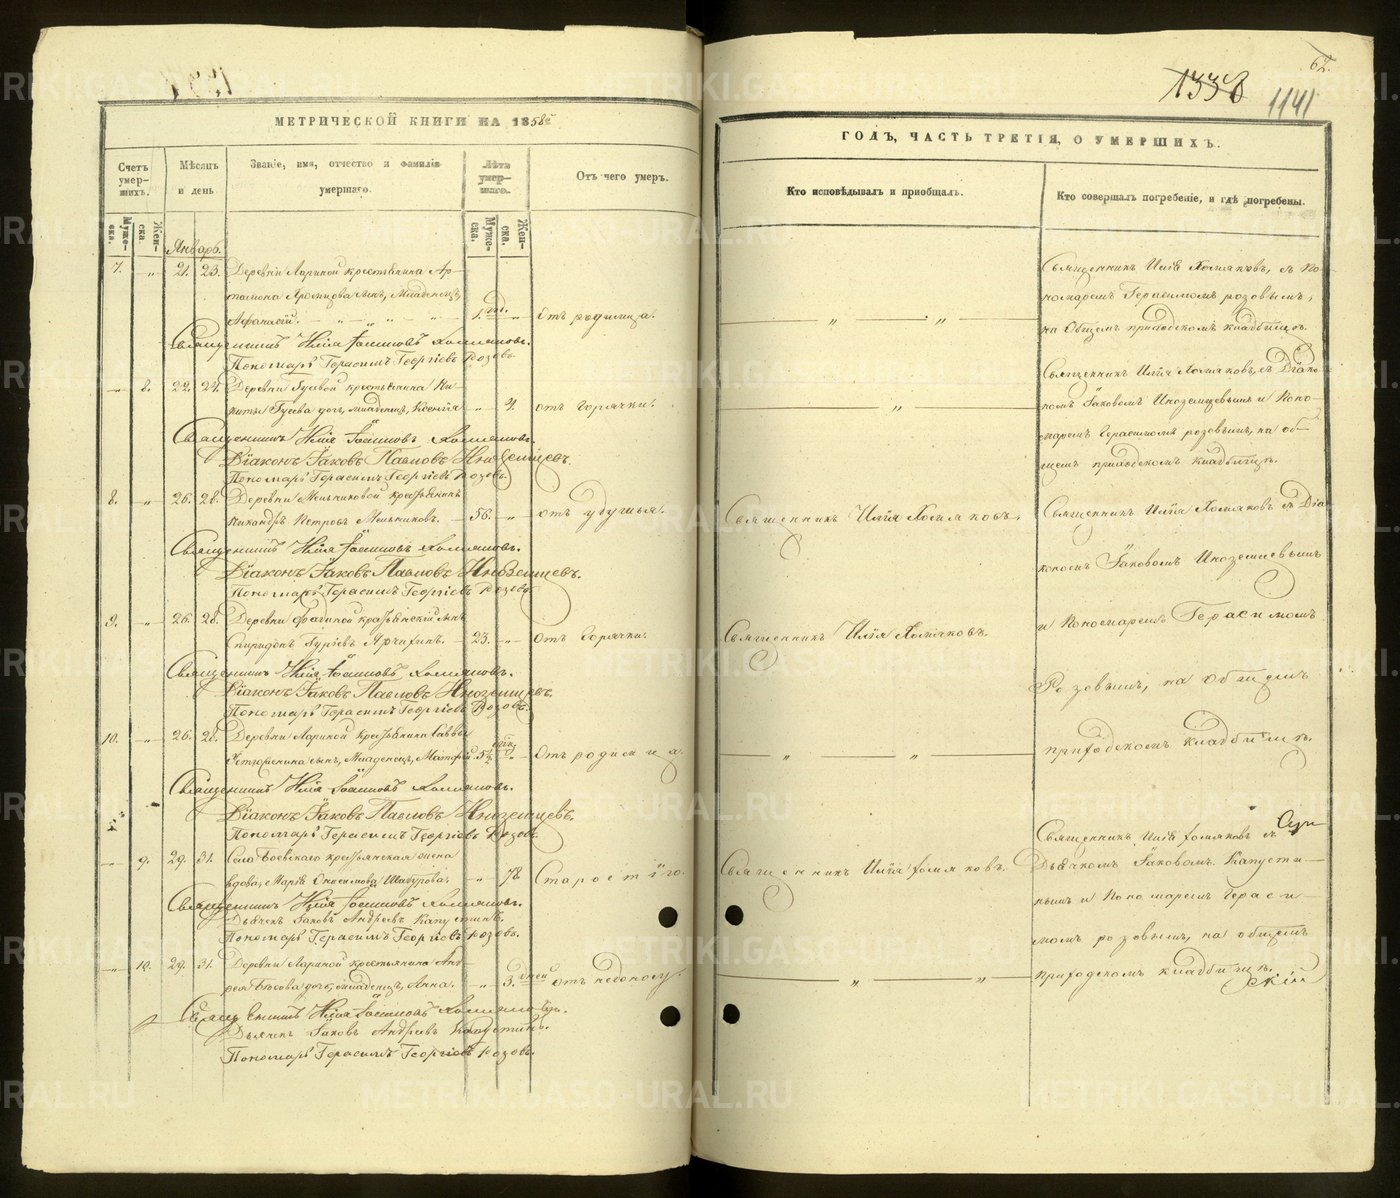 МЕТРИЧЕСКОЙ КНИГИ НА 1858й
Счетъ умер-шихъ.
Мѣсяцъ и день
Званіе, имя, отчество и фамилія умершаго.
Лѣта умер-шаго.
Отъ чего умеръ.
Муже-ска.
Жен-ска
Муже-ска.
Жен-ска.
Январь.
7. „ 21. 23. Деревни Лариной крестьянина Ар-
сынъ, Младенецъ,
Афанасій. 1. „ Отъ родимца.
Священникъ Илія Іоанновъ Холмяковъ.
Пономарь Герасимъ Георгіевъ Розовъ.
„ 8. 22. 24. Деревни Гусевой крестьянина Ни-
киты Гусева дочь, младенецъ, Ксенія „ 4. отъ горячки.
Священникъ Илія Іоанновъ Холмяковъ.
Діаконъ Іаковъ Павловъ Иноземцевъ.
Пономарь Герасимъ Георгіевъ Розовъ.
8. „ 26. 28. Деревни Мельниковой крестьянинъ
Никандръ Петровъ Мельниковъ. 56. „ отъ удушья.
Священникъ Илія Іоанновъ Холмяковъ.
Діаконъ Іаковъ Павловъ Иноземцевъ.
Пономарь Герасимъ Георгіевъ Розовъ.
9. „ 26. 28. Деревни крестьянскій сынъ
Спиридонъ Гурьевъ 23. „ отъ Горячки.
Священникъ Илія Іоанновъ Холмяковъ.
Діаконъ Іаковъ Павловъ Иноземцевъ.
Пономарь Герасимъ Георгіевъ Розовъ.
10. „ 26. 28. Деревни Лариной крестьянина Саввы
сынъ, Младенецъ, Матфій 5½ „ Отъ родимца.
Священникъ Илія Іоанновъ Холмяковъ.
Діаконъ Іаковъ Павловъ Иноземцевъ.
Пономарь Герасимъ Георгіевъ Розовъ.
„ 9. 29. 31. Села Боевскаго крестьянская жена
вдова, Марія Онисимова Шабурова. „ 78. Старостію.
Священникъ Илія Іоанновъ Холмяковъ.
Дьячекъ Іаковъ Андреевъ Капустинъ.
Пономарь Герасимъ Георгіевъ Розовъ.
„ 10. 29. 31. Деревни Лариной крестьянина Анд-
рея дочь, младенецъ, Анна. „ 3. дней отъ недоносу.
Священникъ Илія Іоанновъ Холмяковъ.
Дьячекъ Іаковъ Андреевъ Капустинъ.
Пономарь Герасимъ Георгіевъ Розовъ.
62.
1338
1141
ГОДЪ, ЧАСТЬ ТРЕТІЯ, О УМЕРШИХЪ.
Кто исповѣдывалъ и пріобщалъ.
Кто совершалъ погребеніе, и гдѣ погребены.
Священникъ Илія Холмяковъ, съ По-
номаремъ Герасимомъ розовымъ,
на Общемъ приходскомъ кладбищѣ.
Священникъ Илія Холмяковъ, съ Діако-
номъ Іаковомъ Иноземцевымъ и Поно-
маремъ Герасимомъ розовымъ, на об-
щемъ приходскомъ кладбищѣ.
Священникъ Илія Холмяковъ.
Священникъ Илія Холмяковъ съ Діа-
кономъ Іаковомъ Иноземцевымъ
Священникъ Илія Холмяковъ.
и Пономаремъ Герасимомъ
Розовымъ, на общемъ
приходскомъ кладбищѣ.
Священникъ Илія Холмяковъ.
Священникъ Илія Холмяковъ съ
Дьячкомъ Іаковомъ Капусти-
нымъ и Пономаремъ Гераси-
момъ розовымъ, на общемъ
приходскомъ кладбищѣ.
METRIKI.GASO-URAL.RU